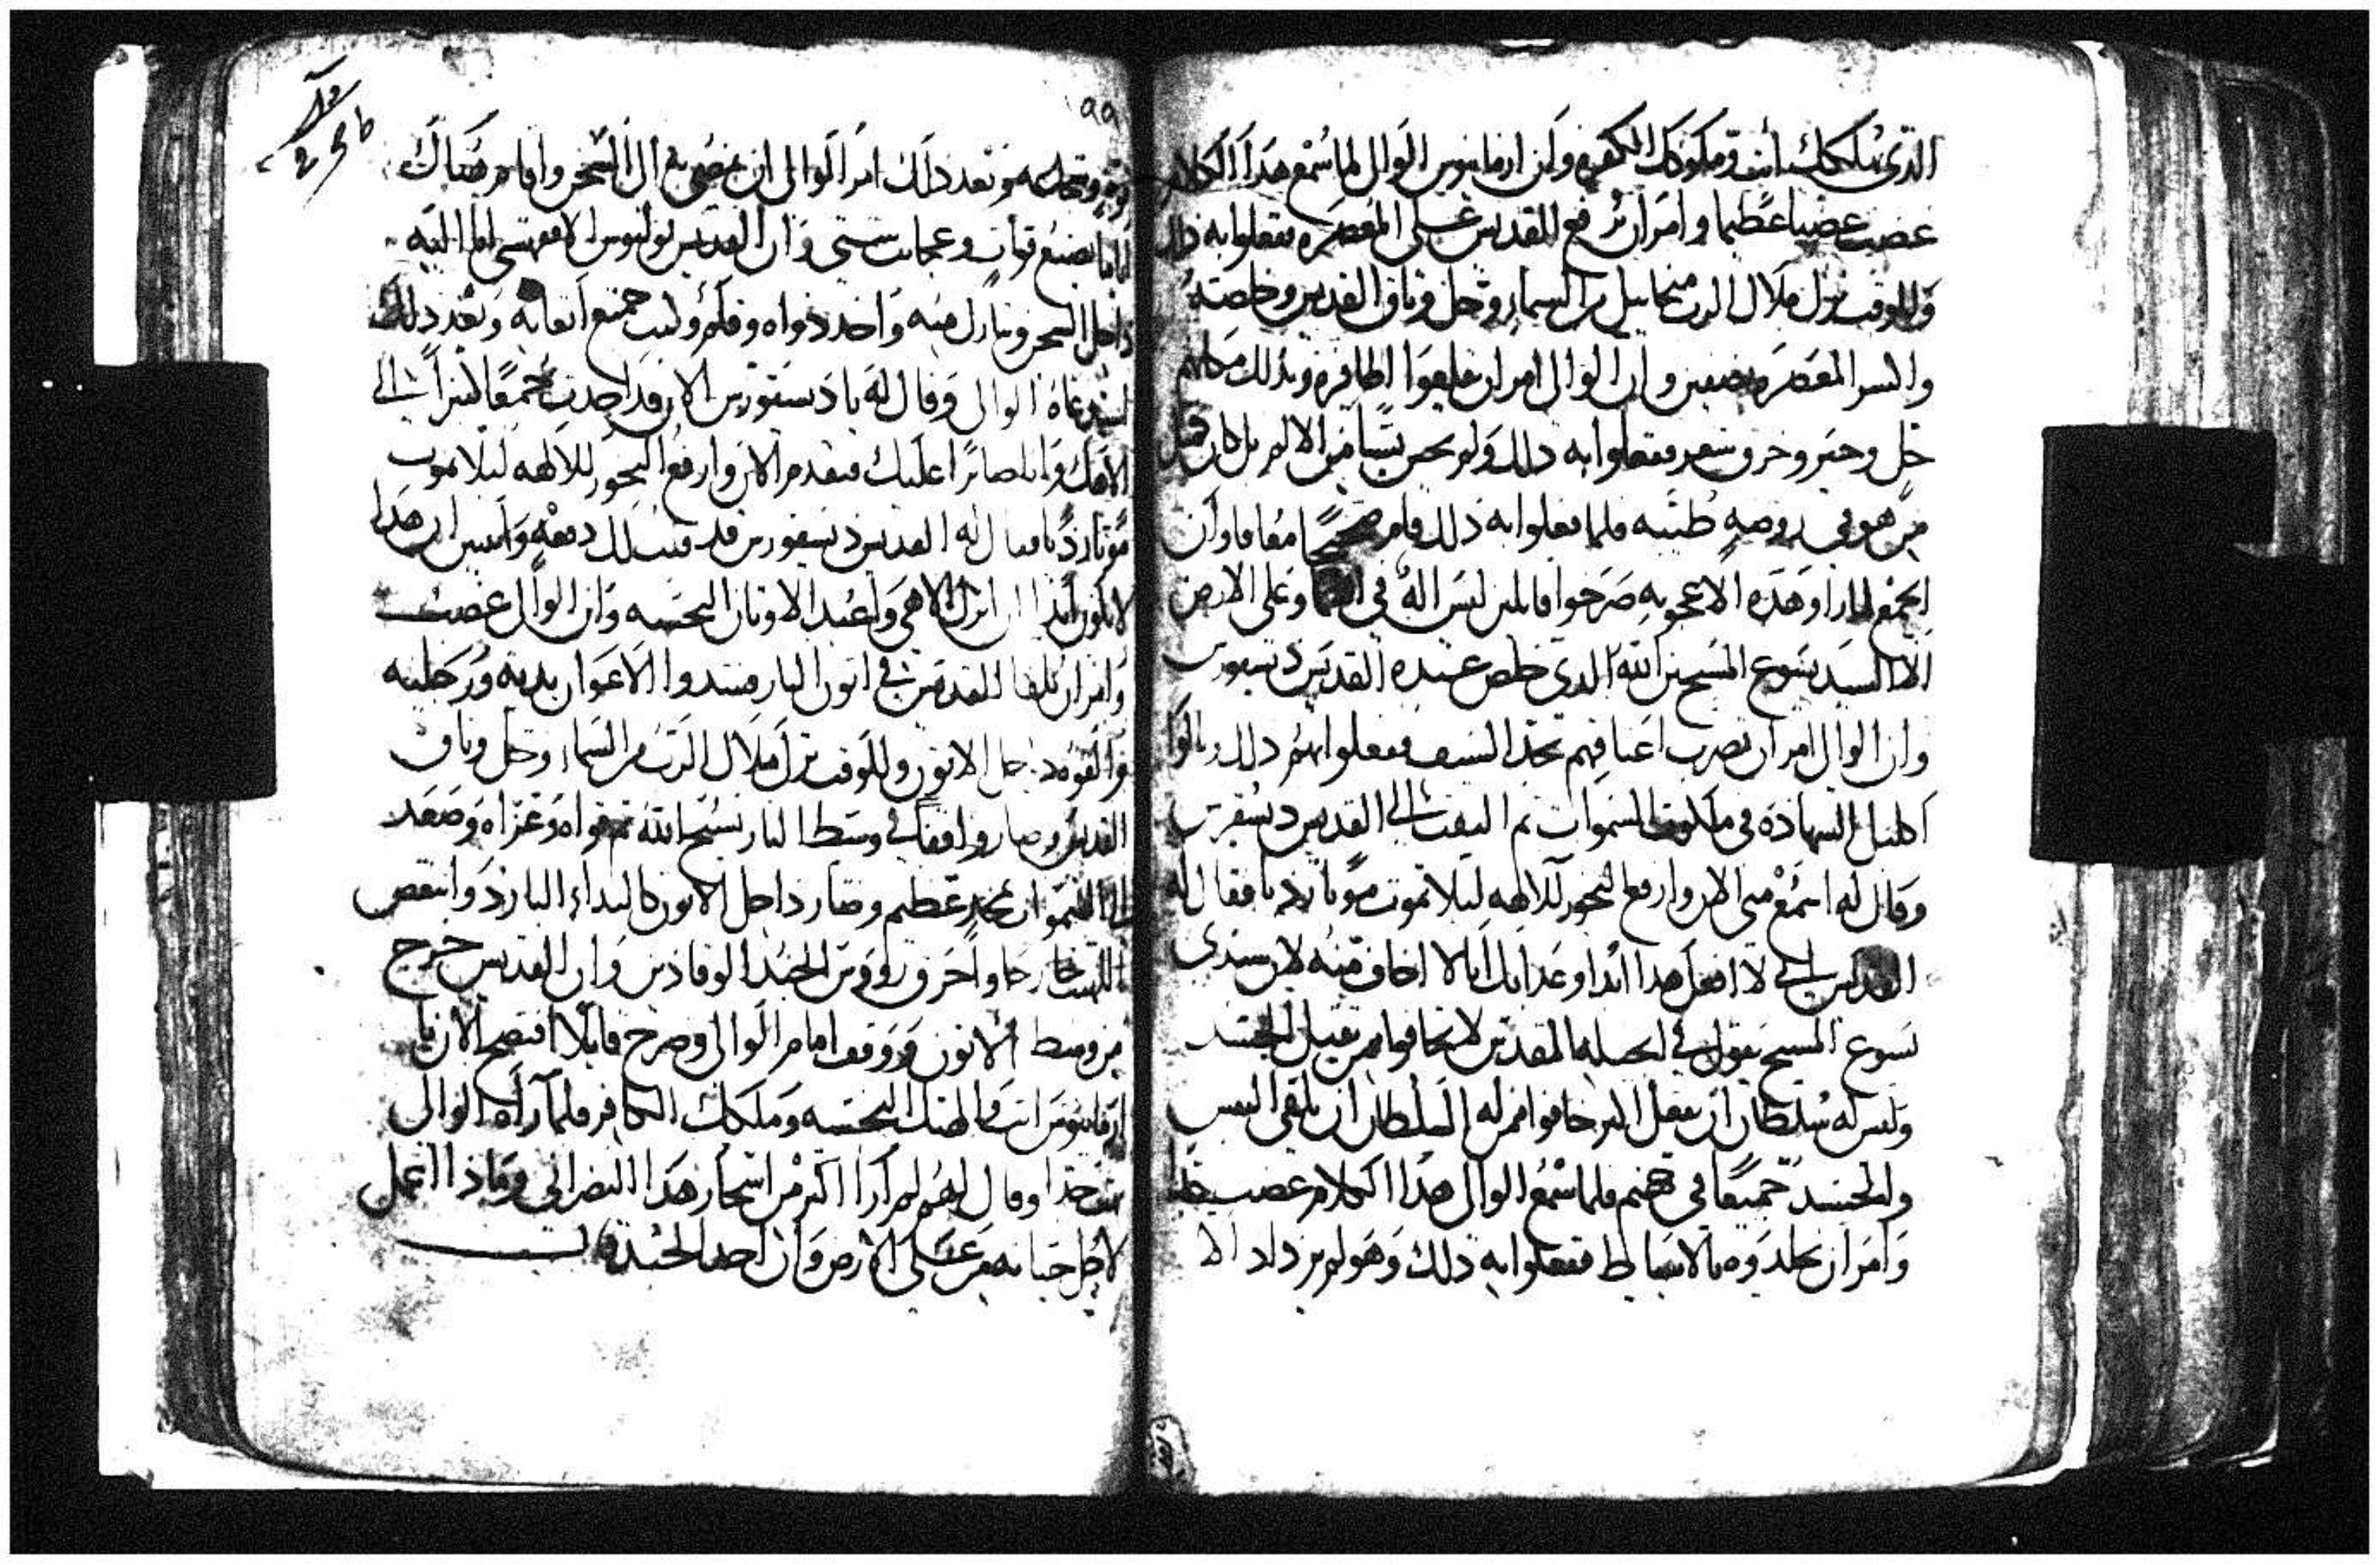 الذي يملكك انت وملوكك الكفره وان ارمانيوس الوالي لما سمع هذا الكلام
غضب غضبا عظيما وامر ان يرفع القديس على المعصره ففعلوا به ذلك
وللوقت نزل ملاك الرب ميخاييل من السماء وحل وثاق القديس وخلصه
المعصره نصفين وان الوالي امر ان
خل وجير وخرق شعر ففعلوا به ذلك ولم يحس بشيا من الالم بل كان مثل
من هو في روضه طيبه فلما فعلوا به ذلك قام صحيحا معافا وان
الجمع لما راوا هذه الاعجوبه صرخوا قايلين ليس اله في السما وعلى الارض
الا السيد يسوع المسيح ابن الله الذي خلص عبده القديس ديسقورس
وان الوالي امر ان تضرب اعناقهم بحد السيف ففعلوا بهم ذلك ونالوا
اكليل الشهاده في ملكوت السموات ثم التفت الى القديس ديسقورس
وقال له اسمع مني الان وارفع البخور للالهه ليلا تموت موتا رديا فقال له
القديس اني لا افعل هذا ابدا وعذابك انا لا اخاف منه لان سيدي
يسوع المسيح يقول في انجيله المقدس لا تخافوا ممن يقتل الجسد
وليس له سلطان ان يقتل النفس خافوا ممن له السلطان ان يلقي النفس
والجسد جميعا في جهنم فلما سمع الوالي هذا الكلام غضب جدا
وامر ان يجلدوه بالاسياط ففعلوا به ذلك وهو لم يزداد الا
٩٩
قوه وشجاعه وبعد ذلك امر الوالي ان يمضي به الى السجن واقام هناك
اياما يصنع قوات وعجايب شتى وان القديس يوليوس الاقفهصي اتى اليه
داخل السجن وتبارك منه واخذ دواه وقلم وكتب جميع اتعابه وبعد ذلك
استدعاه الوالي وقال له يا ديسقورس الان قد اخذت جمعا كثيرا الى
الاهك وانا صابرا عليك فتقدم الان وارفع البخور للالهه ليلا تموت
موتا رديا فقال له القديس ديسقورس قد قلت لك دفعه واثنين ان هذا
لا يكون ابدا ان اترك الاهي واعبد الاوثان النجسه وان الوالي غضب
وامر ان يلقا القديس في اتون النار فشدوا الاعوان يديه ورجليه
والقوه داخل الاتون وللوقت نزل ملاك الرب من السماء وحل وثاق
القديس وصار واقفا في وسط النار يسبح الله ثم قواه وعزاه وصعد
الى السموات بمجد عظيم وصار داخل الاتون كالنداء البارد وانتقض
اللهيب خارجا واحرق روووس الجند الوقادين وان القديس خرج
من وسط الاتون ووقف امام الوالي وصرخ قايلا افتضح الان يا
ارمانيوس انت والهتك النجسه وملكك الكافر فلما راه الوالي
تعجب جدا وقال لهم لم ارا اكثر من اسحار هذا النصراني وماذا اعمل
لاجل حياته من على الارض وان احد الجند